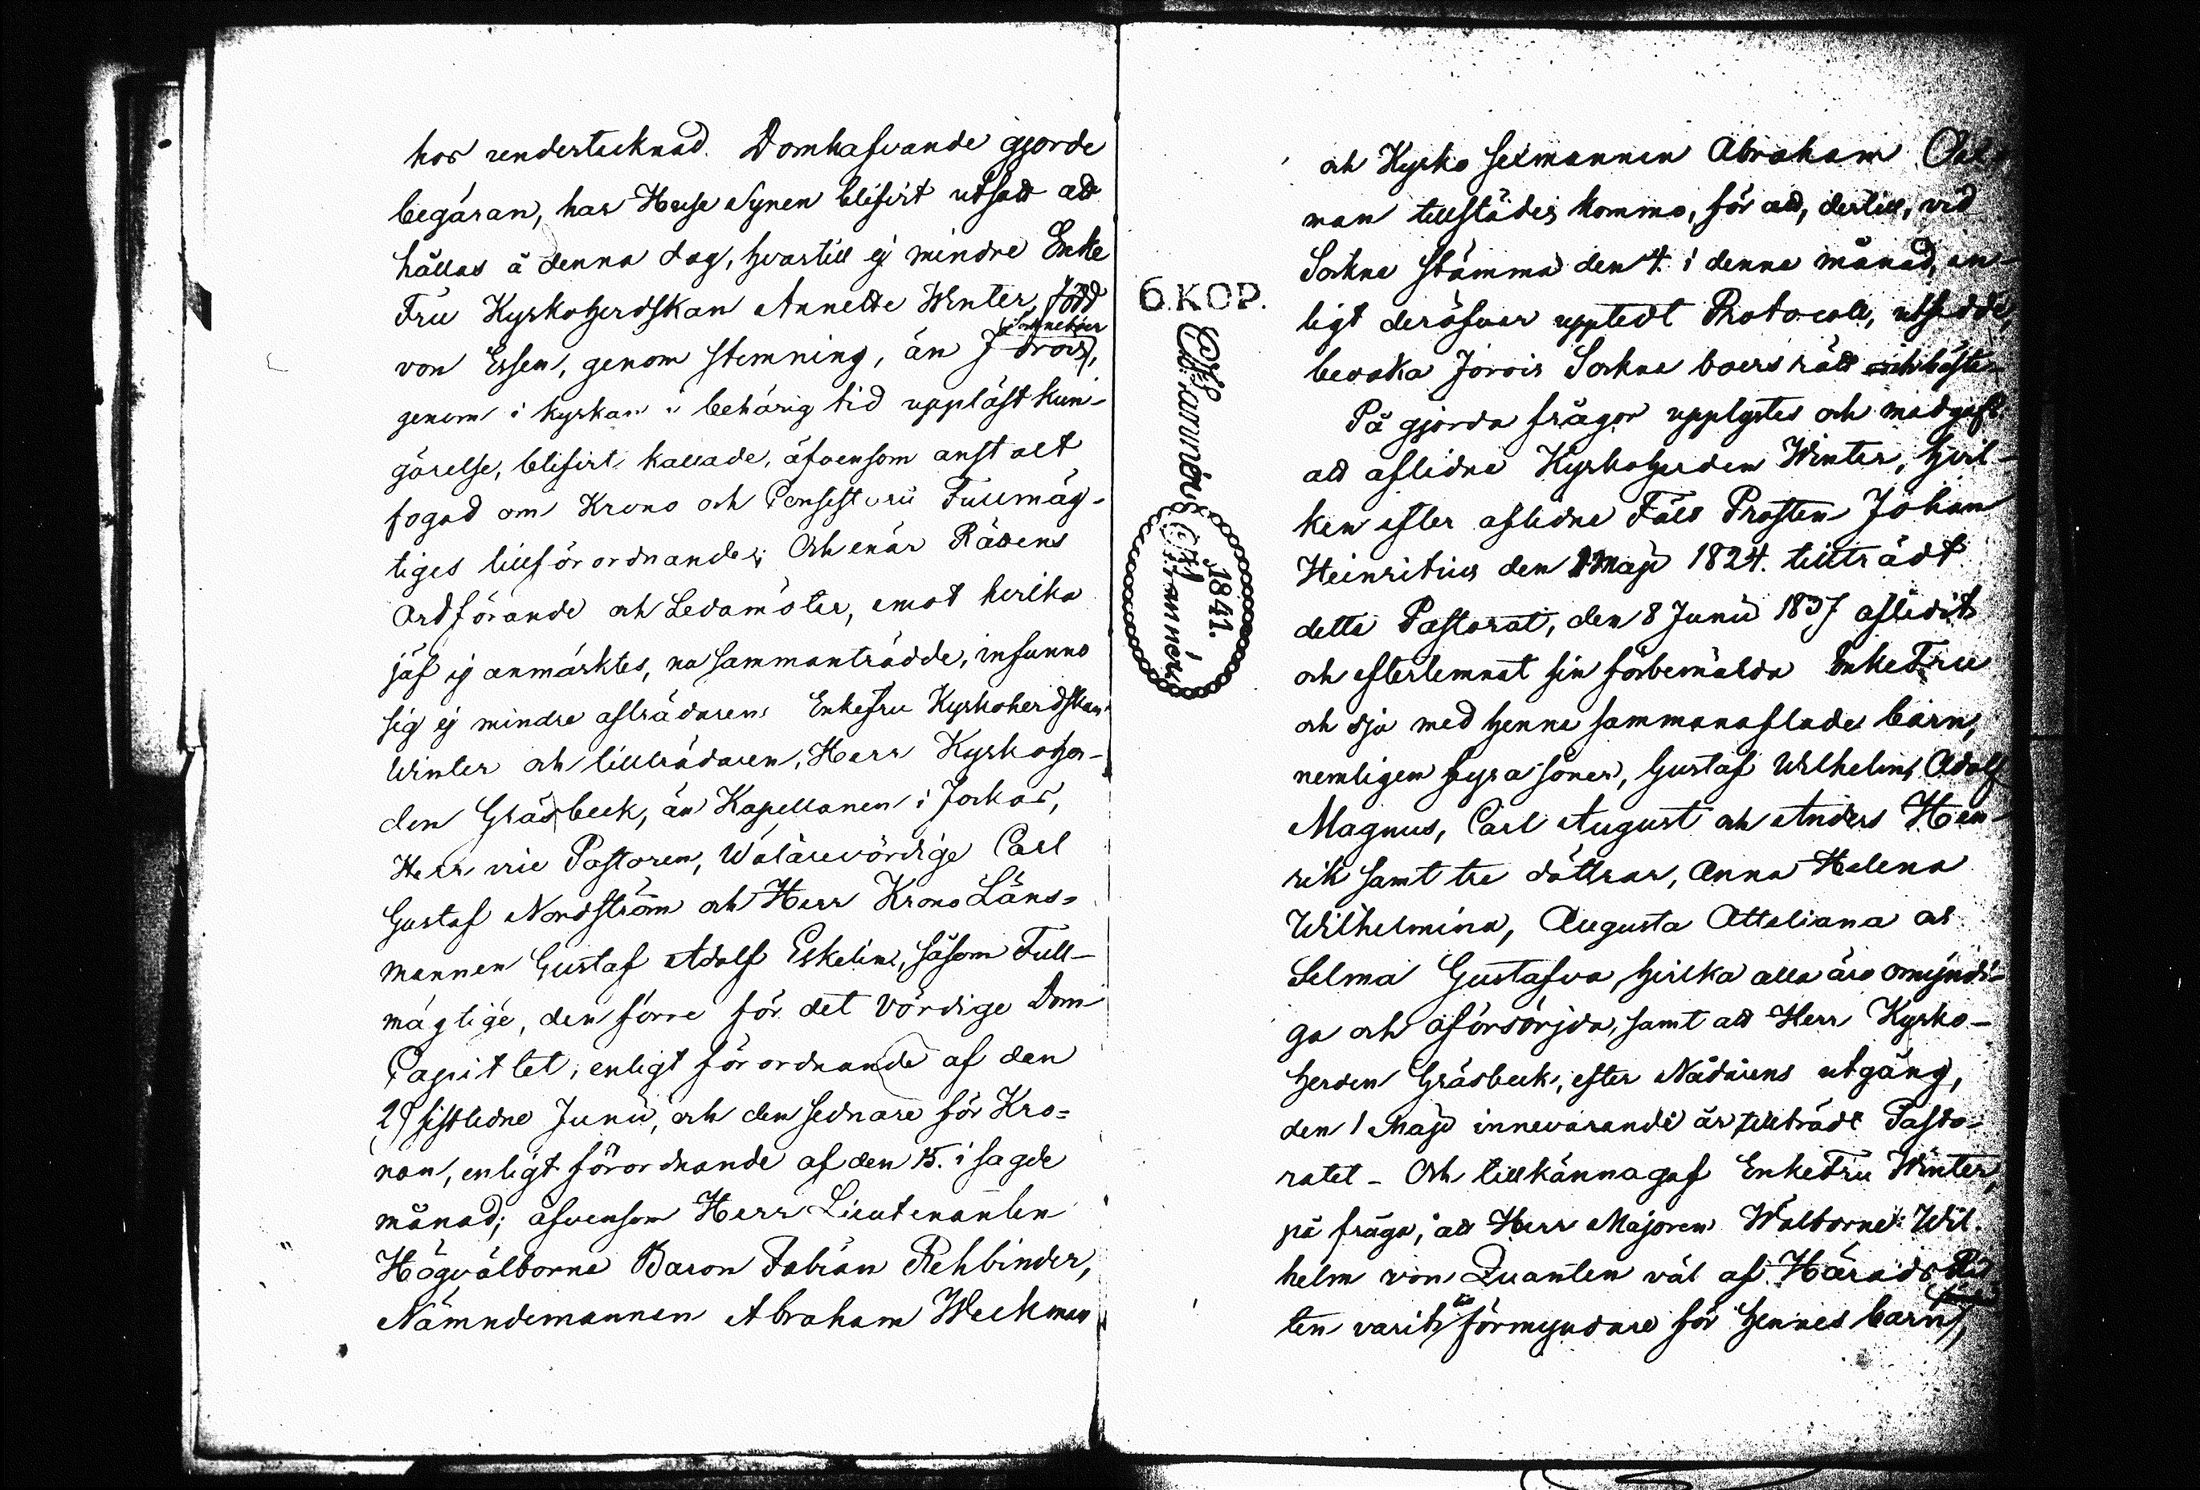 hos undertecknad Domhafvande gjorde
begäran, har Huse Synen blifvit utsatt att
hållas å denna dag, hvartill ej mindre Enke
Fru Kyrkoherdskan Annette Winter, född
von Essen, genom stemning, än Jorois Sockneboer,
genom i kyrkan i behörig tid uppläst kun-
görelse, blifvit kallade, äfvensom anstalt
fogad om Krono och Consistorii Fullmäg-
tiges tillförordnande; Och enär Rättens
Ordförande och Ledamöter, emot hvilka
jäf ej anmärktes, nu sammanträdde, infunno
sig ej mindre afträdaren Enkefru Kyrkoherdskan
Winter och tillträdaren, Herr Kyrkoher-
den Gråsbeck, än Kapellanen i Jockas,
Herr vice Pastoren, Wälärevördige Carl
Gustaf Nordström och Herr Krono Läns-
mannen Gustaf Adolf Eskelin, såsom Full-
mägtige, den förre för det Vördige Dom
Capitlet, enligt förordnande af den
29 sistledne Junii, och den sednare för Kro-
nan, enligt förordnande af den 15. i sagde
månad; äfvensom Herr Lieutenanten
Högvälborne Baron Fabian Rehbinder,
Nämndemannen Abraham Weckman
och Kyrko sexmannen Abraham
man tillstädes kommo, för att, dertill, vid
Sockne stämma den 4. i denna månad, en-
ligt deröfver upptedt Protocoll, utsedde,
bevaka Jorois Sockne boers rätt och bästa
På gjorda frågor upplystes och medgafs
att aflidne Kyrkoherden Winter, hvil-
ken efter aflidne Fält Prosten Johan
Heinricius den 1 Maji 1824. tillträdt
detta Pastorat, den 8 Junii 1837 aflidit
och efterlemnat sin förbemälda Enke Fru
och sju med henne sammanaflade barn,
nemligen fyra söner, Gustaf Wilhelm, Adolf
Magnus, Carl August och Anders Hen-
rik samt tre döttrar, Anna Helena
Wilhelmina, Augusta Attaliana och
Selma Gustafva, hvilka alla äro omyndi-
ga och oförsörjda, samt att Herr Kyrko-
herden Gråsbeck, efter Nådårens utgång,
den 1 Maji innevarande år tillträdt Pasto-
ratet - Och tillkännagaf Enke Fru Winter,
på fråga, att Herr Majoren Wälborne Wil-
helm von Quanten väl af Härads Rät
ten varit förmyndare för hennes barn,
6. KOP.
Charta Sigillata
1841.